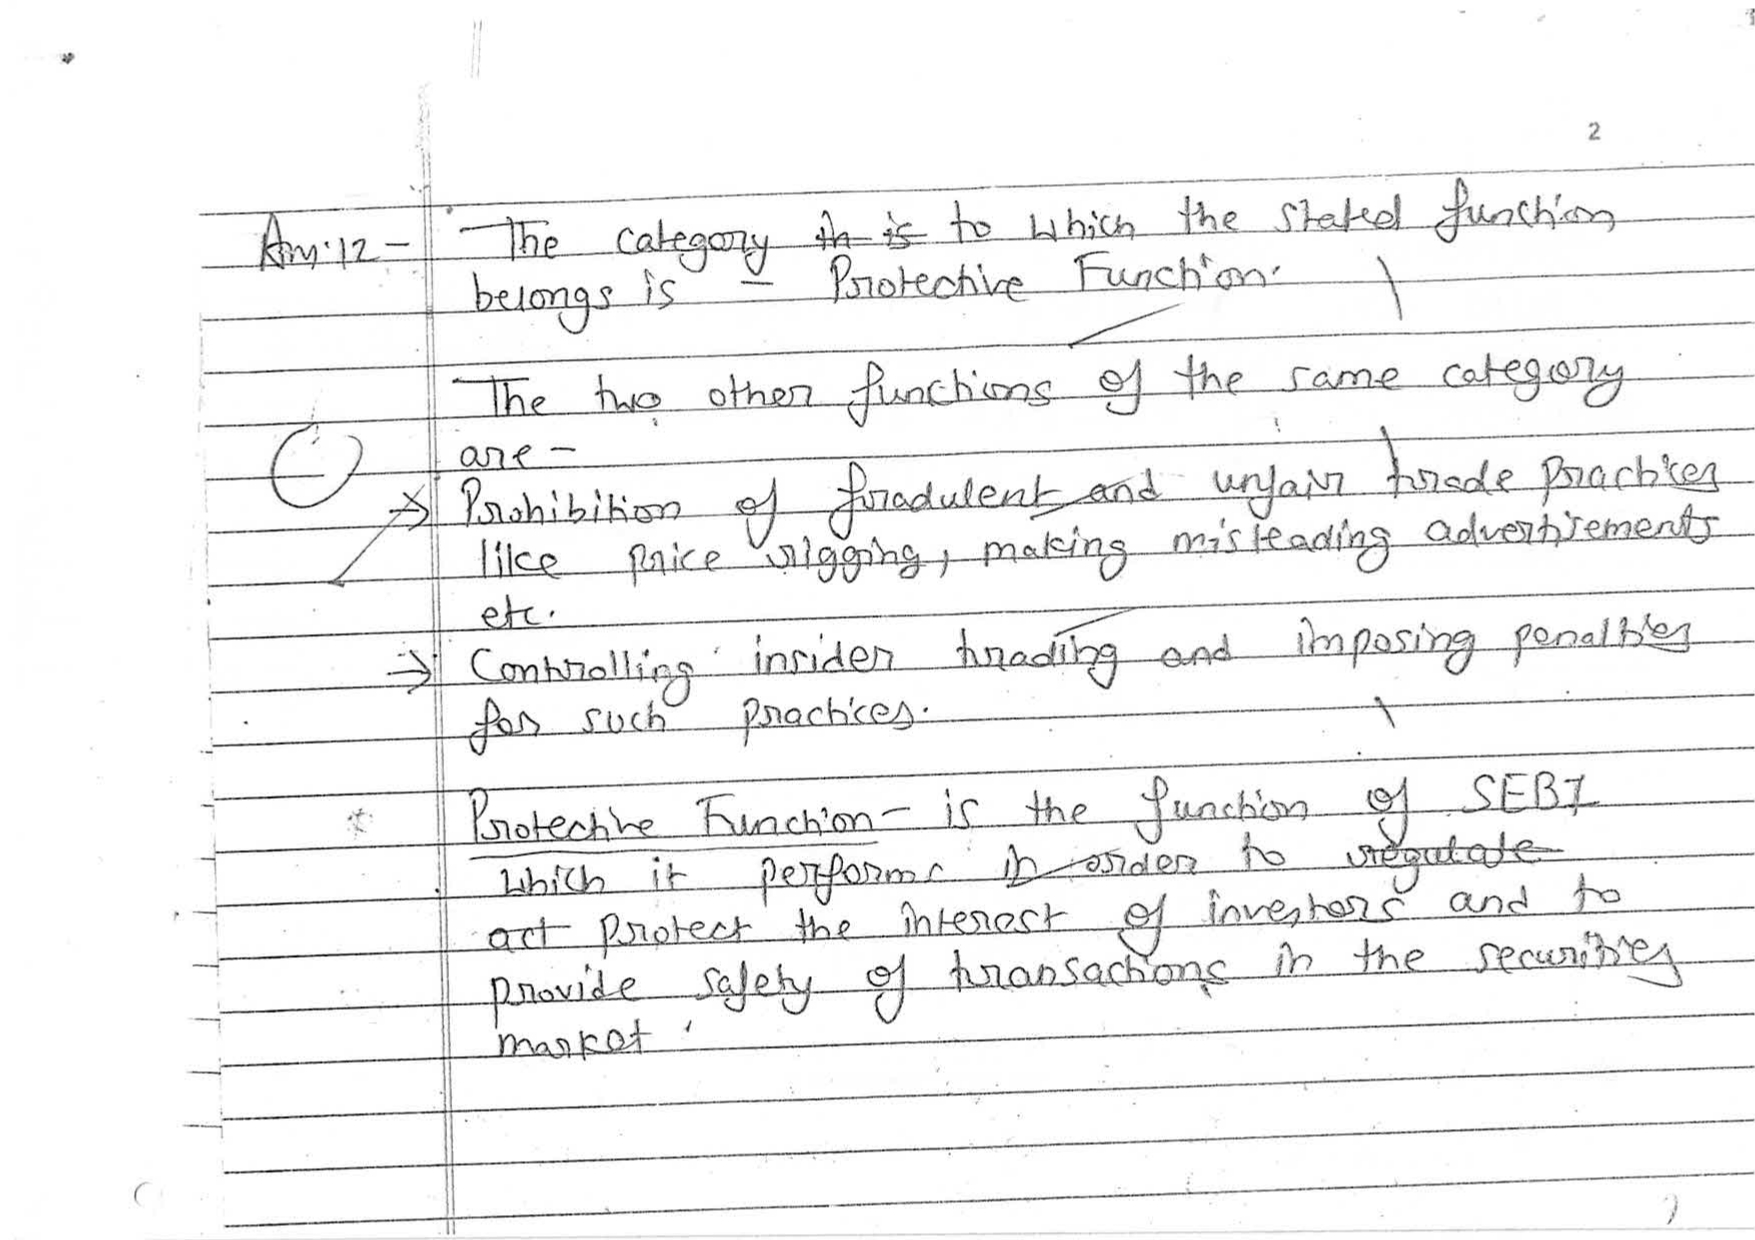 2
Ans.12 - The category in is to which the stated function
belongs is - Protective Function.
The two other functions of the same category
are -
→ Prohibition of fradulent and unfair trade practices
like price rigging, making misleading advertisements
etc.
→ Controlling insider trading and imposing penalties
for such practices.
Protective Function - is the function of SEBI
which it performs in order to regulate
act protect the interest of investors and to
provide safety of transactions in the securities
market.